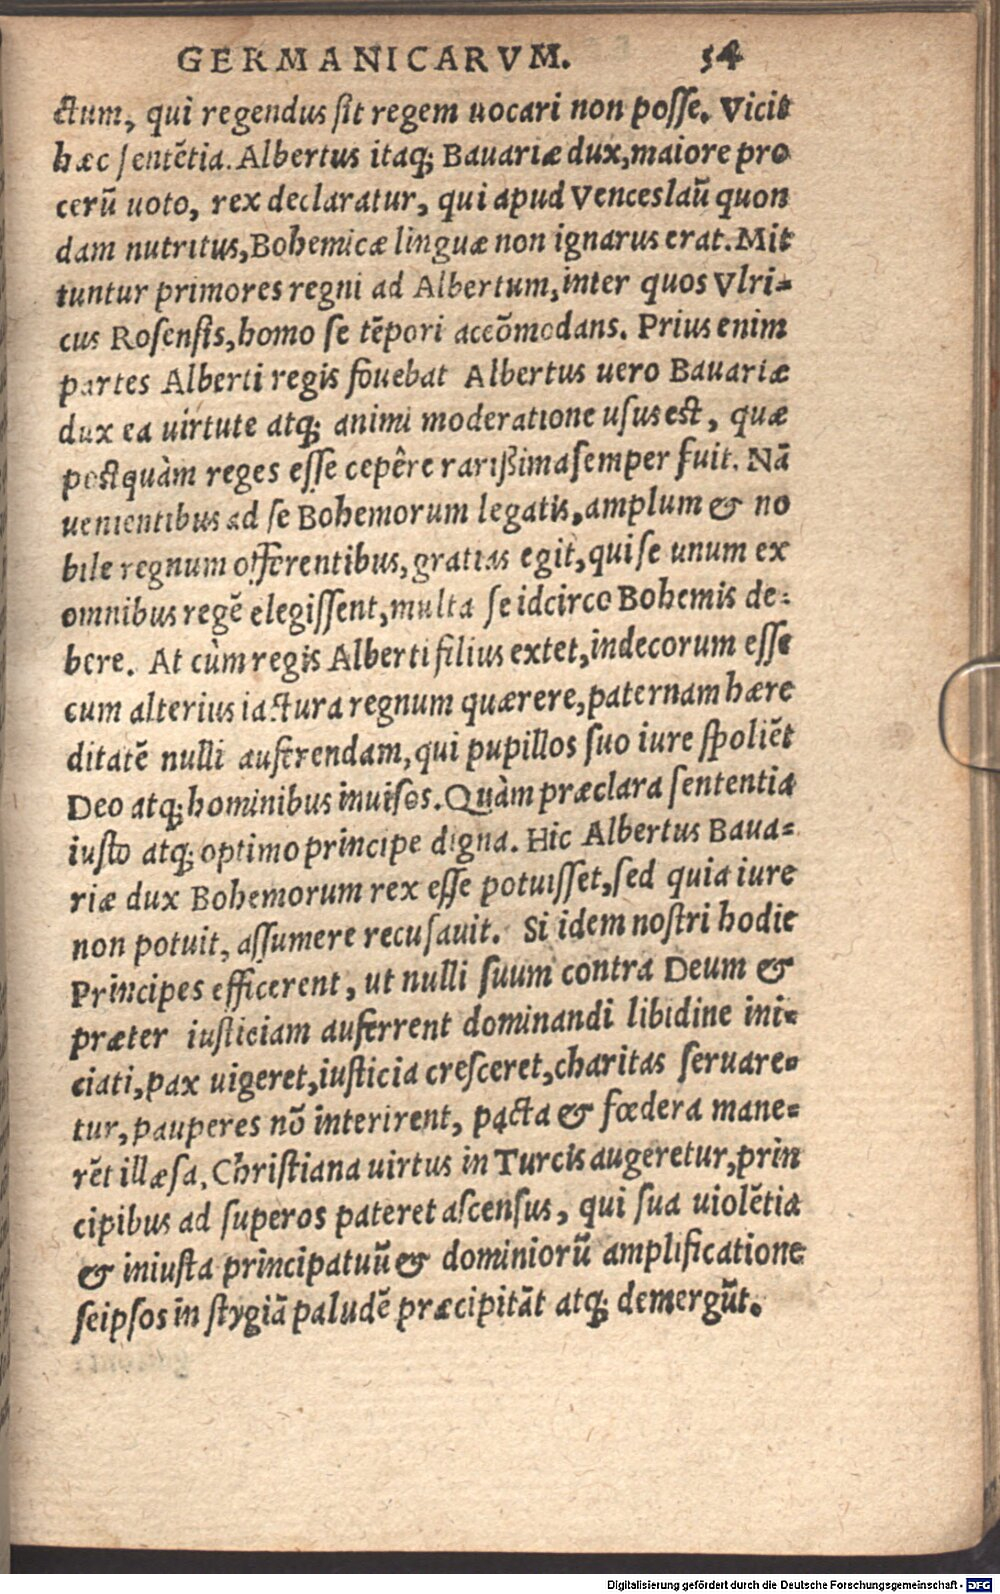 GERMANICARVM. 54
ctum, qui regendus sit regem uocari non posse. Vicit
hæc sentẽtia. Albertus itaq; Bauariæ dux, maiore pro
cerũ uoto, rex declaratur, qui apud Venceslaũ quon
dam nutritus, Bohemicæ linguæ non ignarus erat. Mit
tuntur primores regni ad Albertum, inter quos Vlri-
cus Rosensis, homo se tẽpori accõmodans. Prius enim
partes Alberti regis fouebat Albertus uero Bauariæ
dux ea uirtute atq; animi moderatione usus est, quæ
postquàm reges esse cepêre rarißima semper fuit. Nã
uenientibus ad se Bohemorum legatis, amplum & no
bile regnum offerentibus, gratias egit, qui se unum ex
omnibus regẽ elegissent, multa se idcirco Bohemis de-
bere. At cùm regis Alberti filius extet, indecorum esse
cum alterius iactura regnum quærere, paternam hære
ditatẽ nulli auferendam, qui pupillos suo iure spoliẽt
Deo atq; hominibus inuisos. Quàm præclara sententia
iusto atq; optimo principe digna. Hic Albertus Baua-
riæ dux Bohemorum rex esse potuisset, sed quia iure
non potuit, assumere recusauit. Si idem nostri hodie
Principes efficerent, ut nulli suum contra Deum &
præter iusticiam auferrent dominandi libidine ini-
ciati, pax uigeret, iusticia cresceret, charitas seruare-
tur, pauperes nõ interirent, pacta & fœdera mane-
rẽt illæsa, Christiana uirtus in Turcis augeretur, prin
cipibus ad superos pateret ascensus, qui sua uiolẽtia
& iniusta principatuũ & dominiorũ amplificatione
seipsos in stygiã paludẽ præcipitãt atq; demergũt.
Digitalisierung gefördert durch die Deutsche Forschungsgemeinschaft - DFG